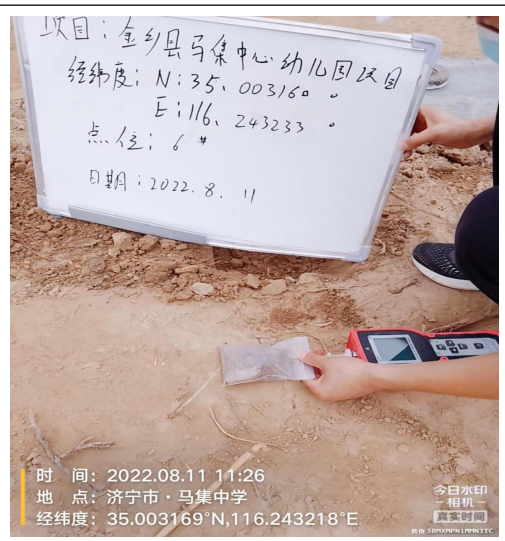 项目：金乡县马集中心幼儿园项目
经纬度：N：35.003160°
E：116.243233°
点位：6#
日期：2022.8.11
时 间：2022.08.11 11:26
地 点：济宁市·马集中学
经纬度：35.003169°N,116.243218°E
今日水印
-相机-
真实时间
防伪 SBMXMPN1MMN3TC